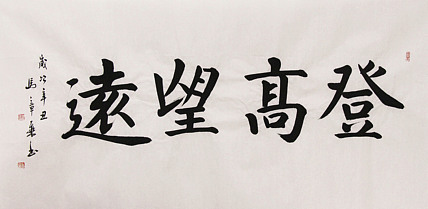 登高望遠
歲次辛丑
馬章乘書